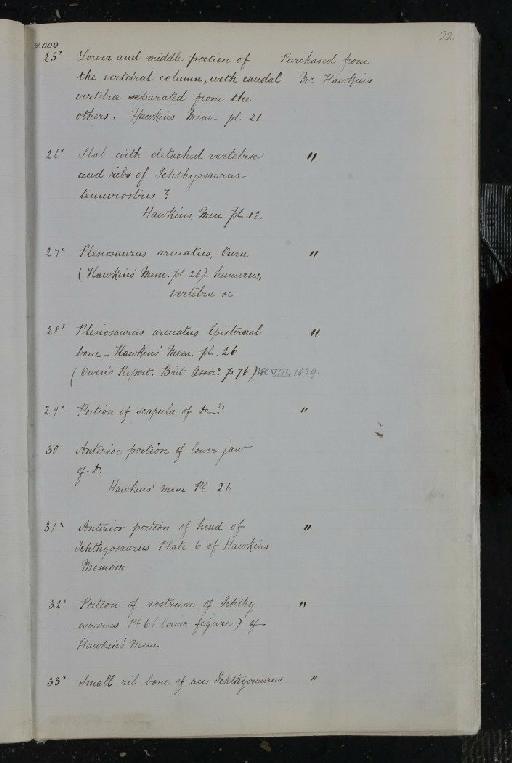 22
25* Lower and middle portion of Purchased from
the vertebral column, with caudal Mr Hawkins
vertebra separated from the
others. Hawkins Mem. pl. 21
26* Slab with detached vertebrae "
and ribs of Ichthyosaurus
tenuirostris?
Hawkins, Mem pl. 12.
27* Plesiosaurus arcuatus, Owen "
(Hawkins' Mem. pl 26) humerus,
vertebra &c
28* Plesiosaurus arcuatus Episternal "
bone - Hawkins' Mem. pl. 26
(Owen's Report. Brit Assoc. p 76) 1839.
29* Portion of scapula of do "
30 Anterior portion of lower jaw
of do
Hawkins' Mem Pl. 26
31* Anterior portion of head of "
Ichthyosaurus Plate 6 of Hawkins
Memoir
32* Portion of rostrum of Ichthy "
osaurus Pl. 6 (lower figure) of
Hawkins' Mem.
33* Small rib bone of an Ichthyosaurus "